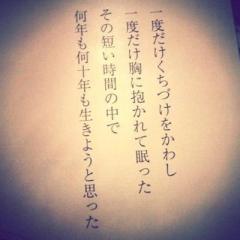 一度だけくちづけをかわし
一度だけ胸に抱かれて眠った
その短い時間の中で
何年も何十年も生きようと思った